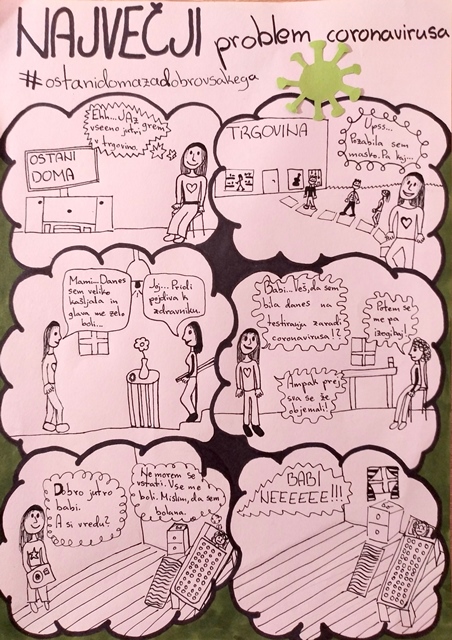 NAJVEČJI problem coronavirusa
#ostanidomazadobrovsakega
Ehh... JAz grem
vseeno jutri
v trgovino.
OSTANI
DOMA
TRGOVINA
Upss...
Pozabila sem
masko. Pa kaj...
Mami... Danes
sem veliko
kašljala in
glava me zelo
boli...
Joj... Pridi
pojdiva k
zdravniku.
Babi... Veš, da sem
bila danes na
testiranju zaradi
coronavirusa!?
Potem se
me pa
izogibaj!
Ampak prej
sva se že
objemali!
Dobro jutro
babi.
A si vredu?
Ne morem se
vstati. Vse me
boli. Mislim, da sem
bolana.
BABI
NEEEEEE!!!